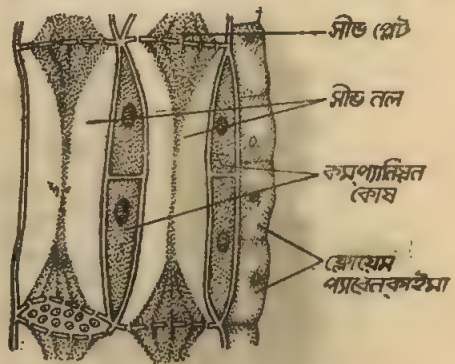 সীভ প্লেট
সীভ নল
কম্প্যানিয়ন
কোষ
ফ্লোয়েম
প্যারেনকাইমা